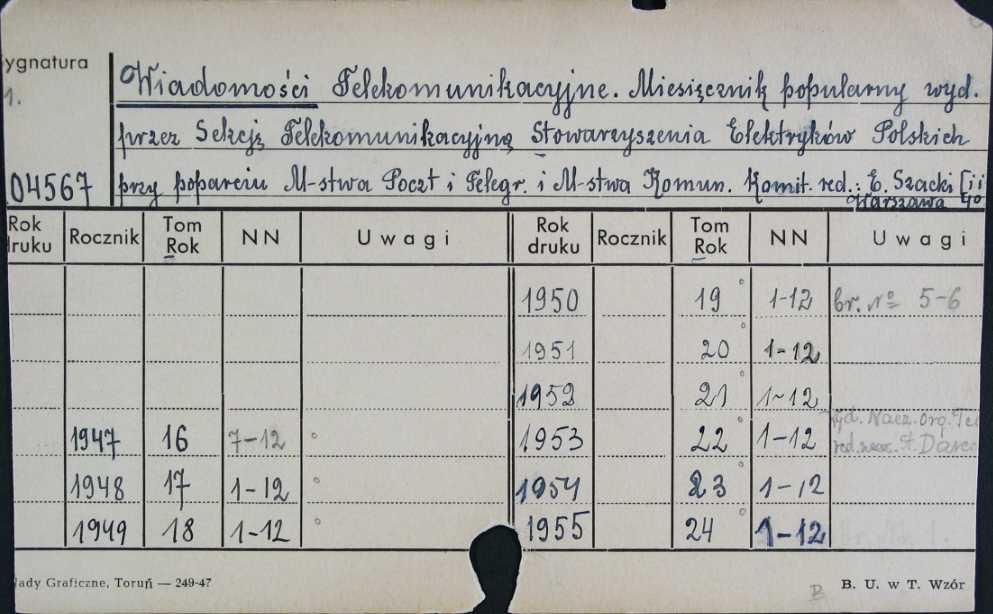 ygnatura
Wiadomości Telekomunikacyjne. Miesięcznik popularny wyd.
1.
przez Sekcję Telekomunikacyjną Stowarzyszenia Elektryków Polskich
04567 przy poparciu M-stwa Poczt i Telegr. i M-stwa Komun. Komit. red.: E. Szacki [i i
Warszawa
Rok druku Rocznik Tom Rok NN Uwagi Rok druku Rocznik Tom Rok NN Uwagi
1950 19 1-12 br. No 5-6
1951 20 1-12
1952 21 1-12
wyd. Nacz. Org. Te
1947 16 7-12 1953 22 1-12 red. nacz.
1948 17 1-12 1954 23 1-12
1949 18 1-12 1955 24 1-12
łady Graficzne, Toruń — 249-47 B B. U. w T. Wzór